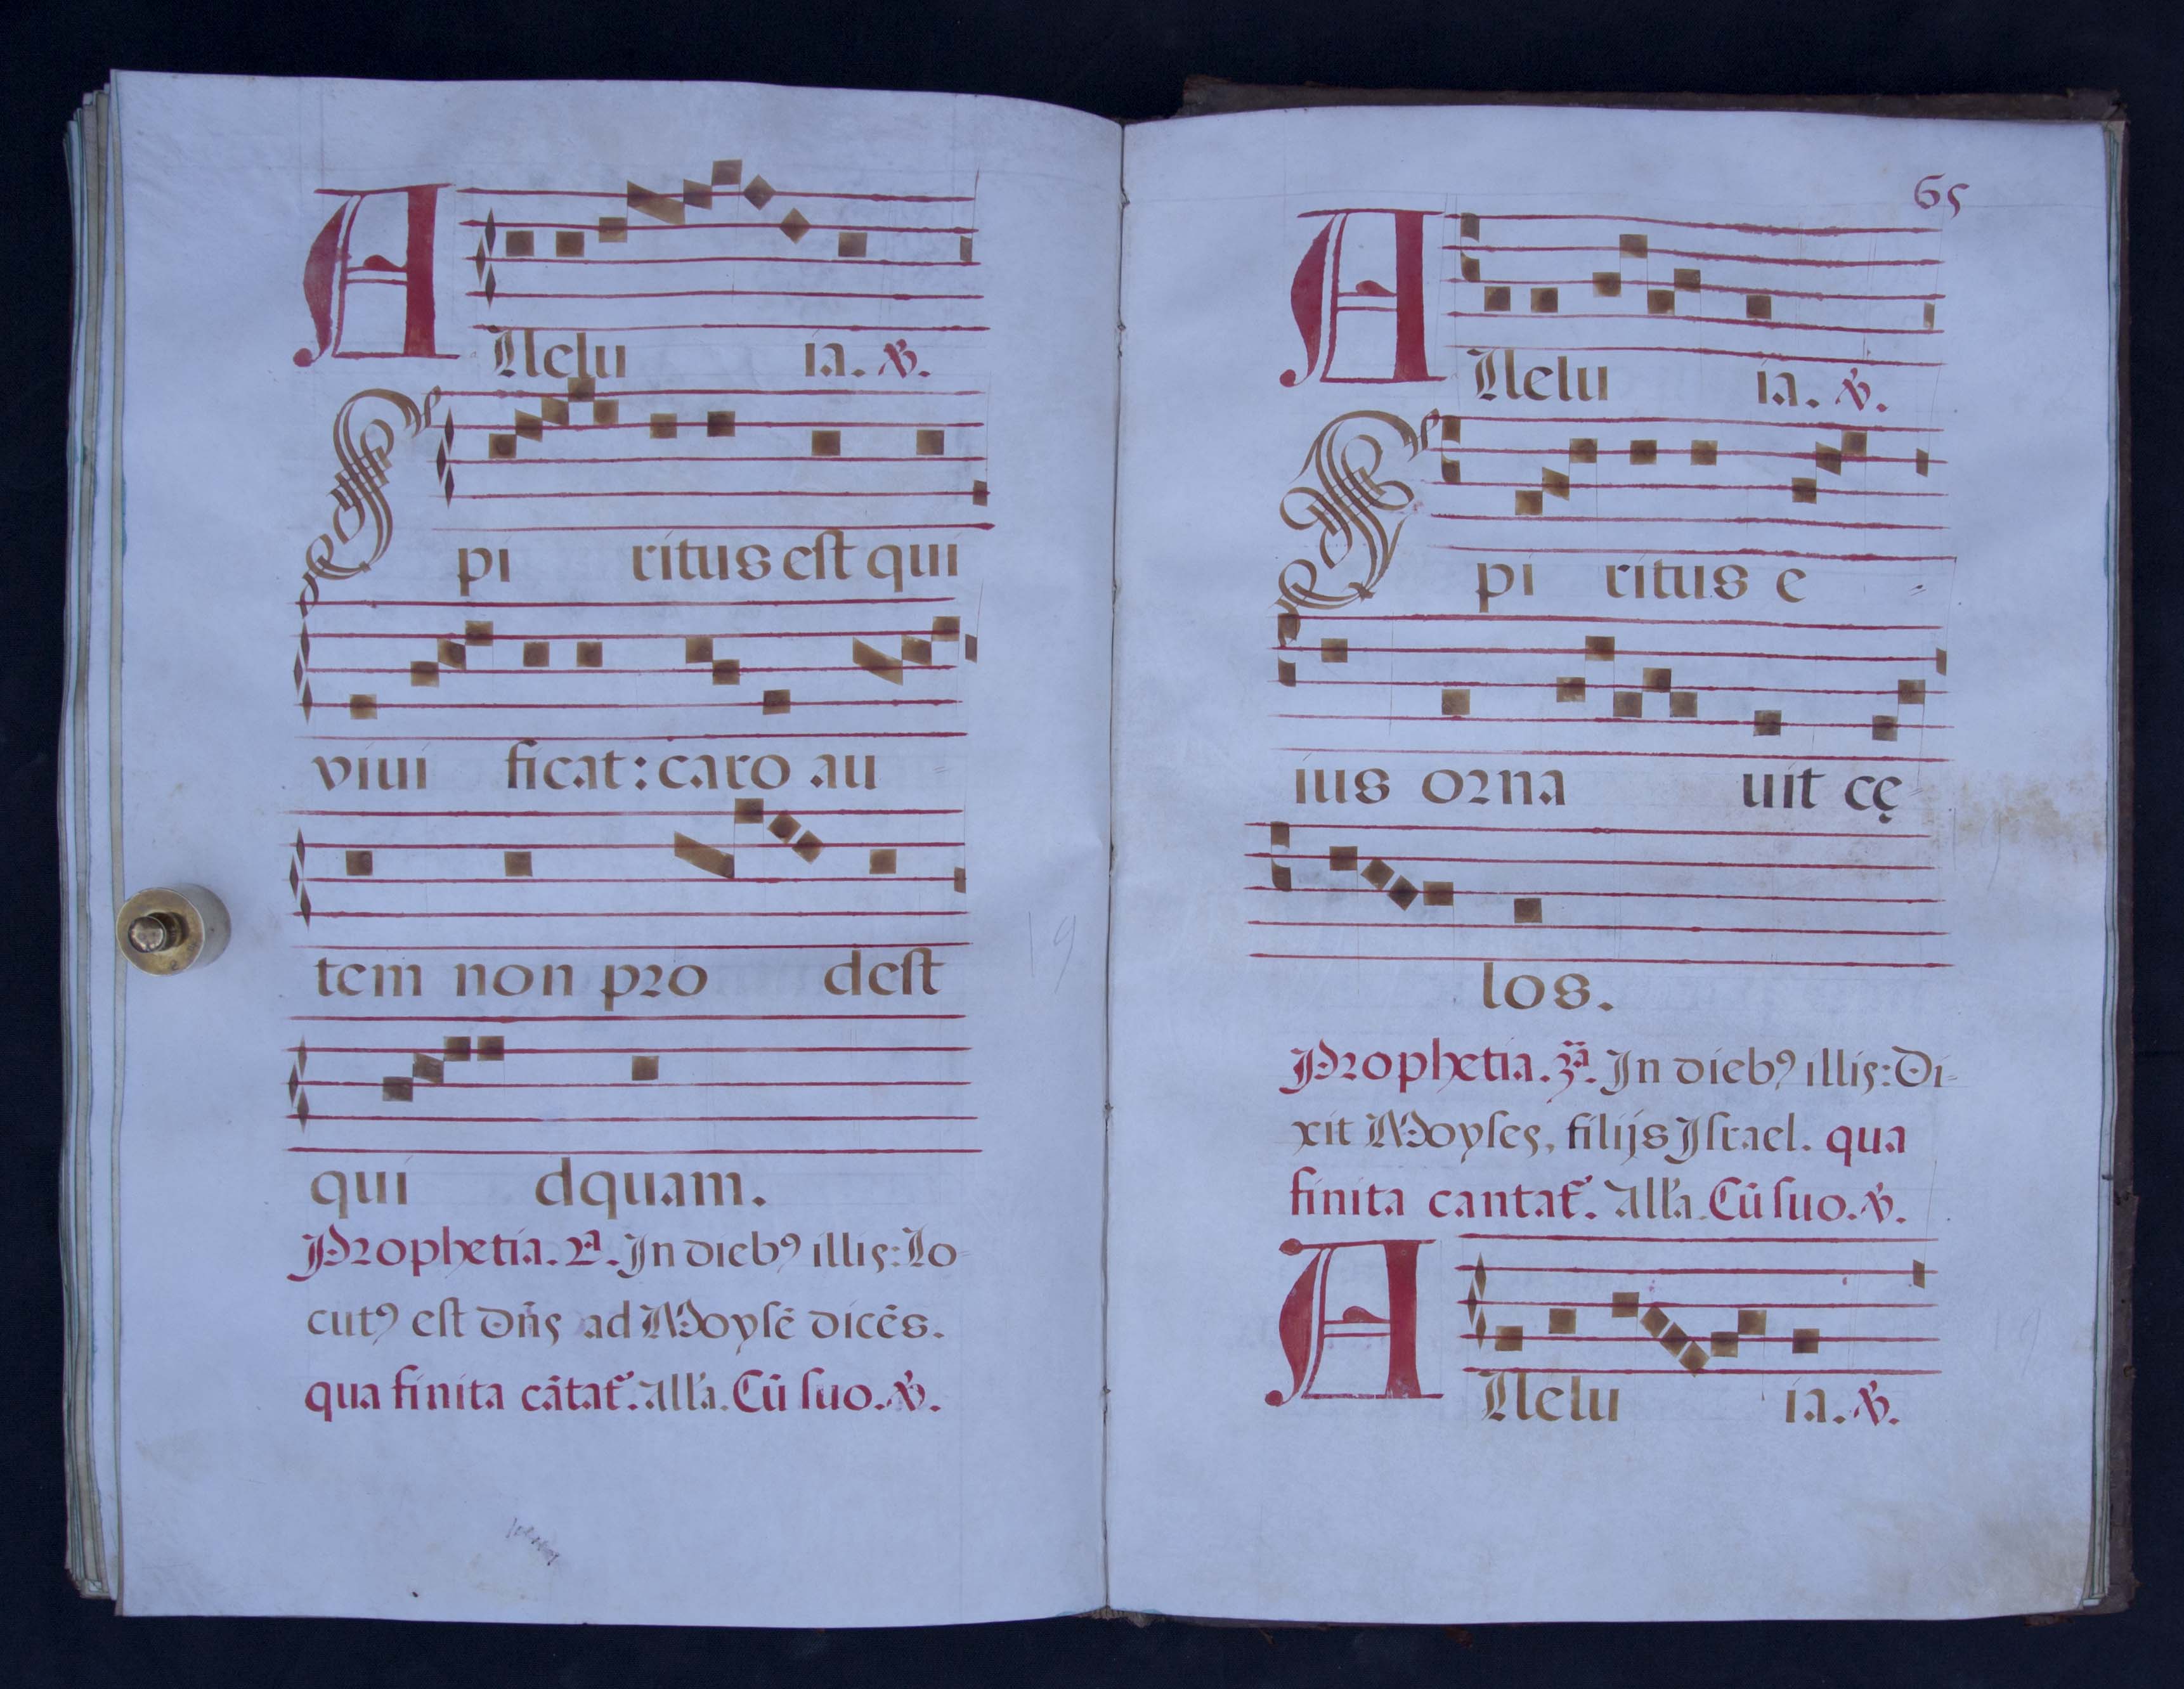 Allelu ia. ℣.
Spi ritus est qui
viui ficat: caro au
tem non pro dest
qui dquam.
Prophetia. 2ª. In dieb9 illis: Lo
cut9 est Dn̄s ad Moysē dicēs.
qua finita cātat᷑. All'a. Cū suo. ℣.
65
Allelu ia. ℣.
Spi ritus e
ius orna uit cę
los.
Prophetia. 3ª. In dieb9 illis: Di=
xit Moyses, filijs Israel. qua
finita cantat᷑. All'a. Cū suo. ℣.
Allelu ia. ℣.
19